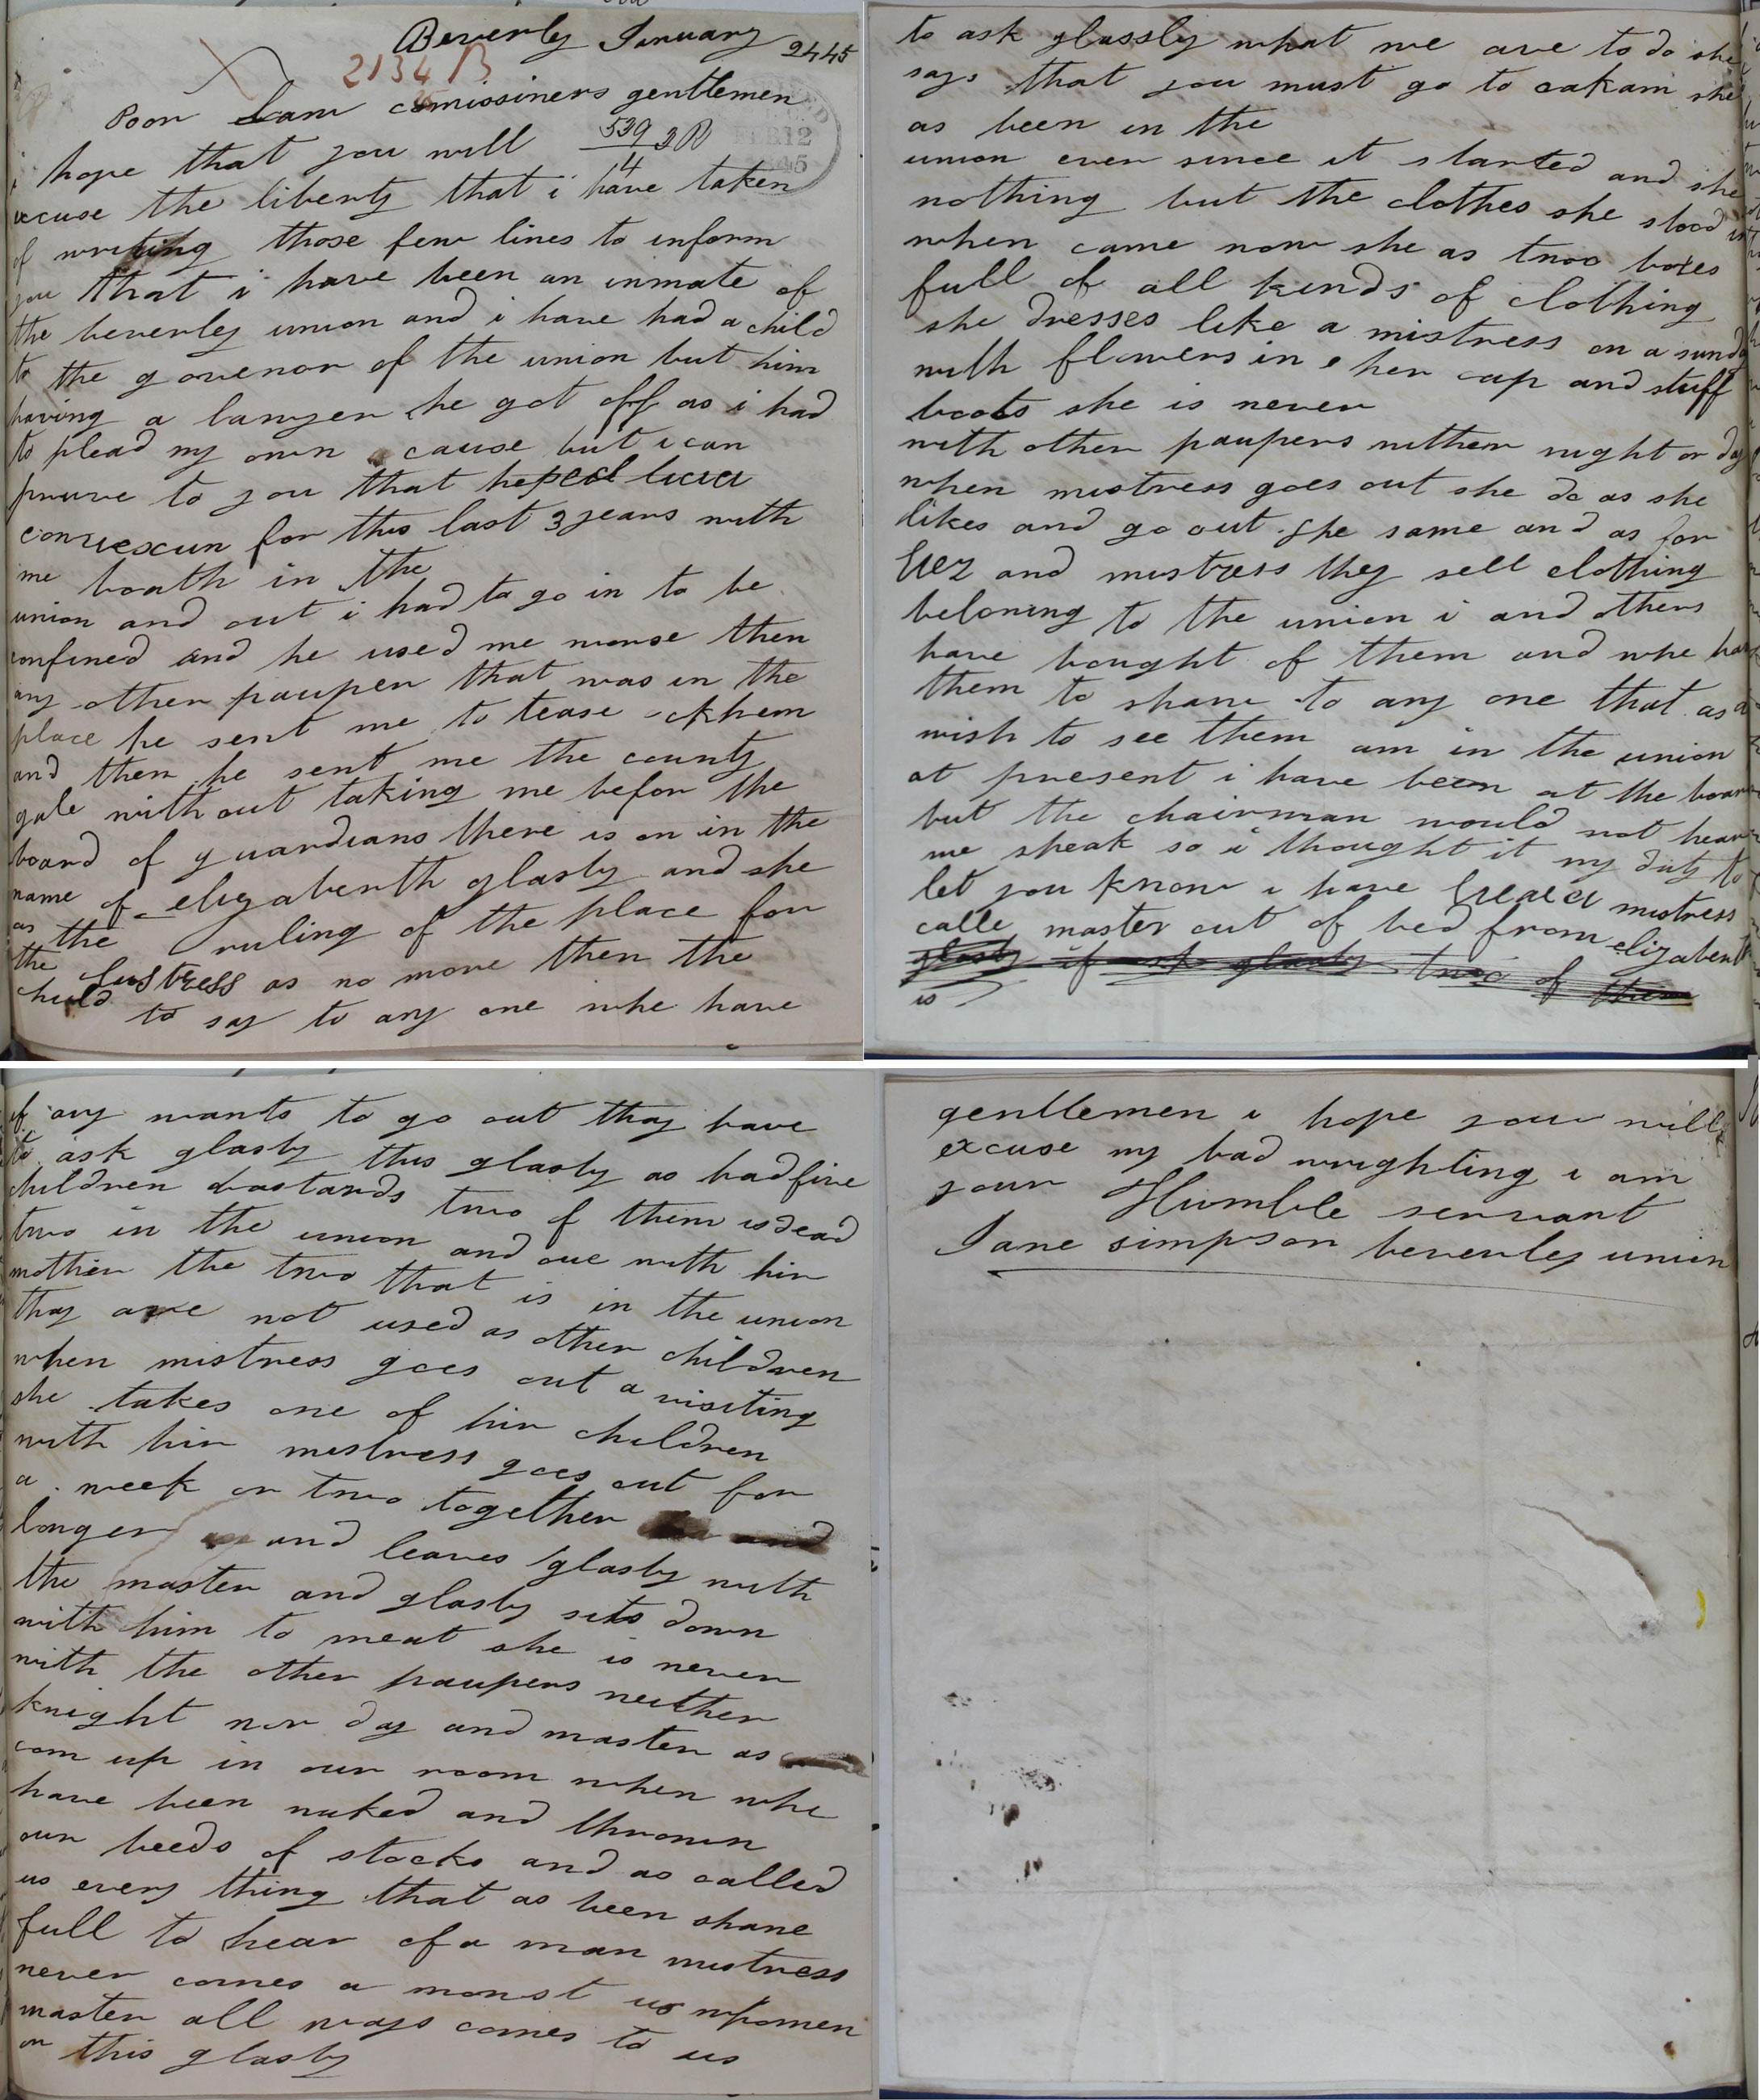 Beverley January 24 45
2134 B
Poor Law comissiners gentlemen
i hope that you will 539 3B
14
12
45
excuse the liberty that i have taken
of writing those few lines to inform
you that i have been an inmate of
the beverley union and i have had a child
to the govenor of the union but him
having a lawyer he got off as i had
to plead my own cause but i can
pruve to you that he had
for this last 3 years with
me boath in the
union and out i had to go in to be
confined and he used me worse then
any other pauper that was in the
place he sent me to tease ockhem
and then he sent me the county
gale without taking me befor the
board of guardians there is on in the
name of elizabenth glasby and she
as the ruling of the place for
the mistress as no more then the
child to say to any one whe have
to ask glassly what we are to do she
says that you must go to oakam she
as been in the
union ever since it started and she
nothing but the clothes she stood in
when came now she as twoo boxes
full of all kinds of clothing
she dresses like a mistress on a sunday
with flowers in her cap and stuff
boots she is never
with other paupers nithem night or day
when mistress goes out she do as she
likes and go out the same and as for
her and mistress they sell clothing
beloning to the union i and others
have bought of them and whe have
them to shaw to any one that as a
wish to see them am in the union
at present i have been at the board
but the chairman would not hear
me speak so i thought it my duty to
let you know i have heard mistress
calle master out of bed from elizabenth
glasby if glasby two of them
is
if any wants to go out thay have
to ask glasby this glasby as had five
children bastards two of them is dead
two in the union and one with hir
mother the two that is in the union
thay are not used as other children
when mistress goes out a visiting
she takes one of hir children
with hir mistress goes out for
a week or two together and
longer and leaves glasby with
the master and glasby sits down
with him to meat she is never
with the other paupers neither
knight nor day and master as
com up in our room when whe
have been naked and thrown
our beeds of stocks and as called
us every thing that as been shane
full to hear of a man mistress
never comes a monst us women
master all ways comes to us
or this glasby
gentlemen i hope your will
excuse my bad wrighting i am
your Humble servant
Jane simpson beverley union